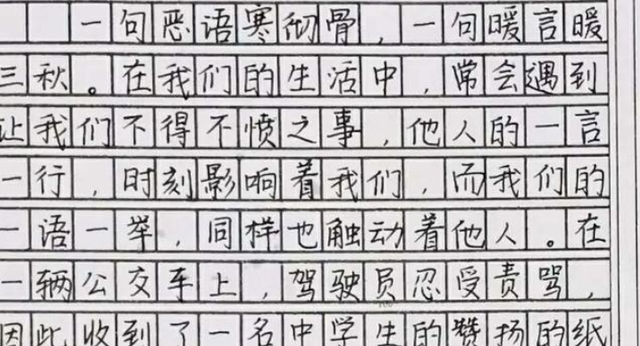 一句恶语寒彻骨，一句暖言暖
三秋。在我们的生活中，常会遇到
让我们不得不愤之事，他人的一言
一行，时刻影响着我们，而我们的
一语一举，同样也触动着他人。在
一辆公交车上，驾驶员忍受责骂，
因此收到了一名中学生的赞扬的纸